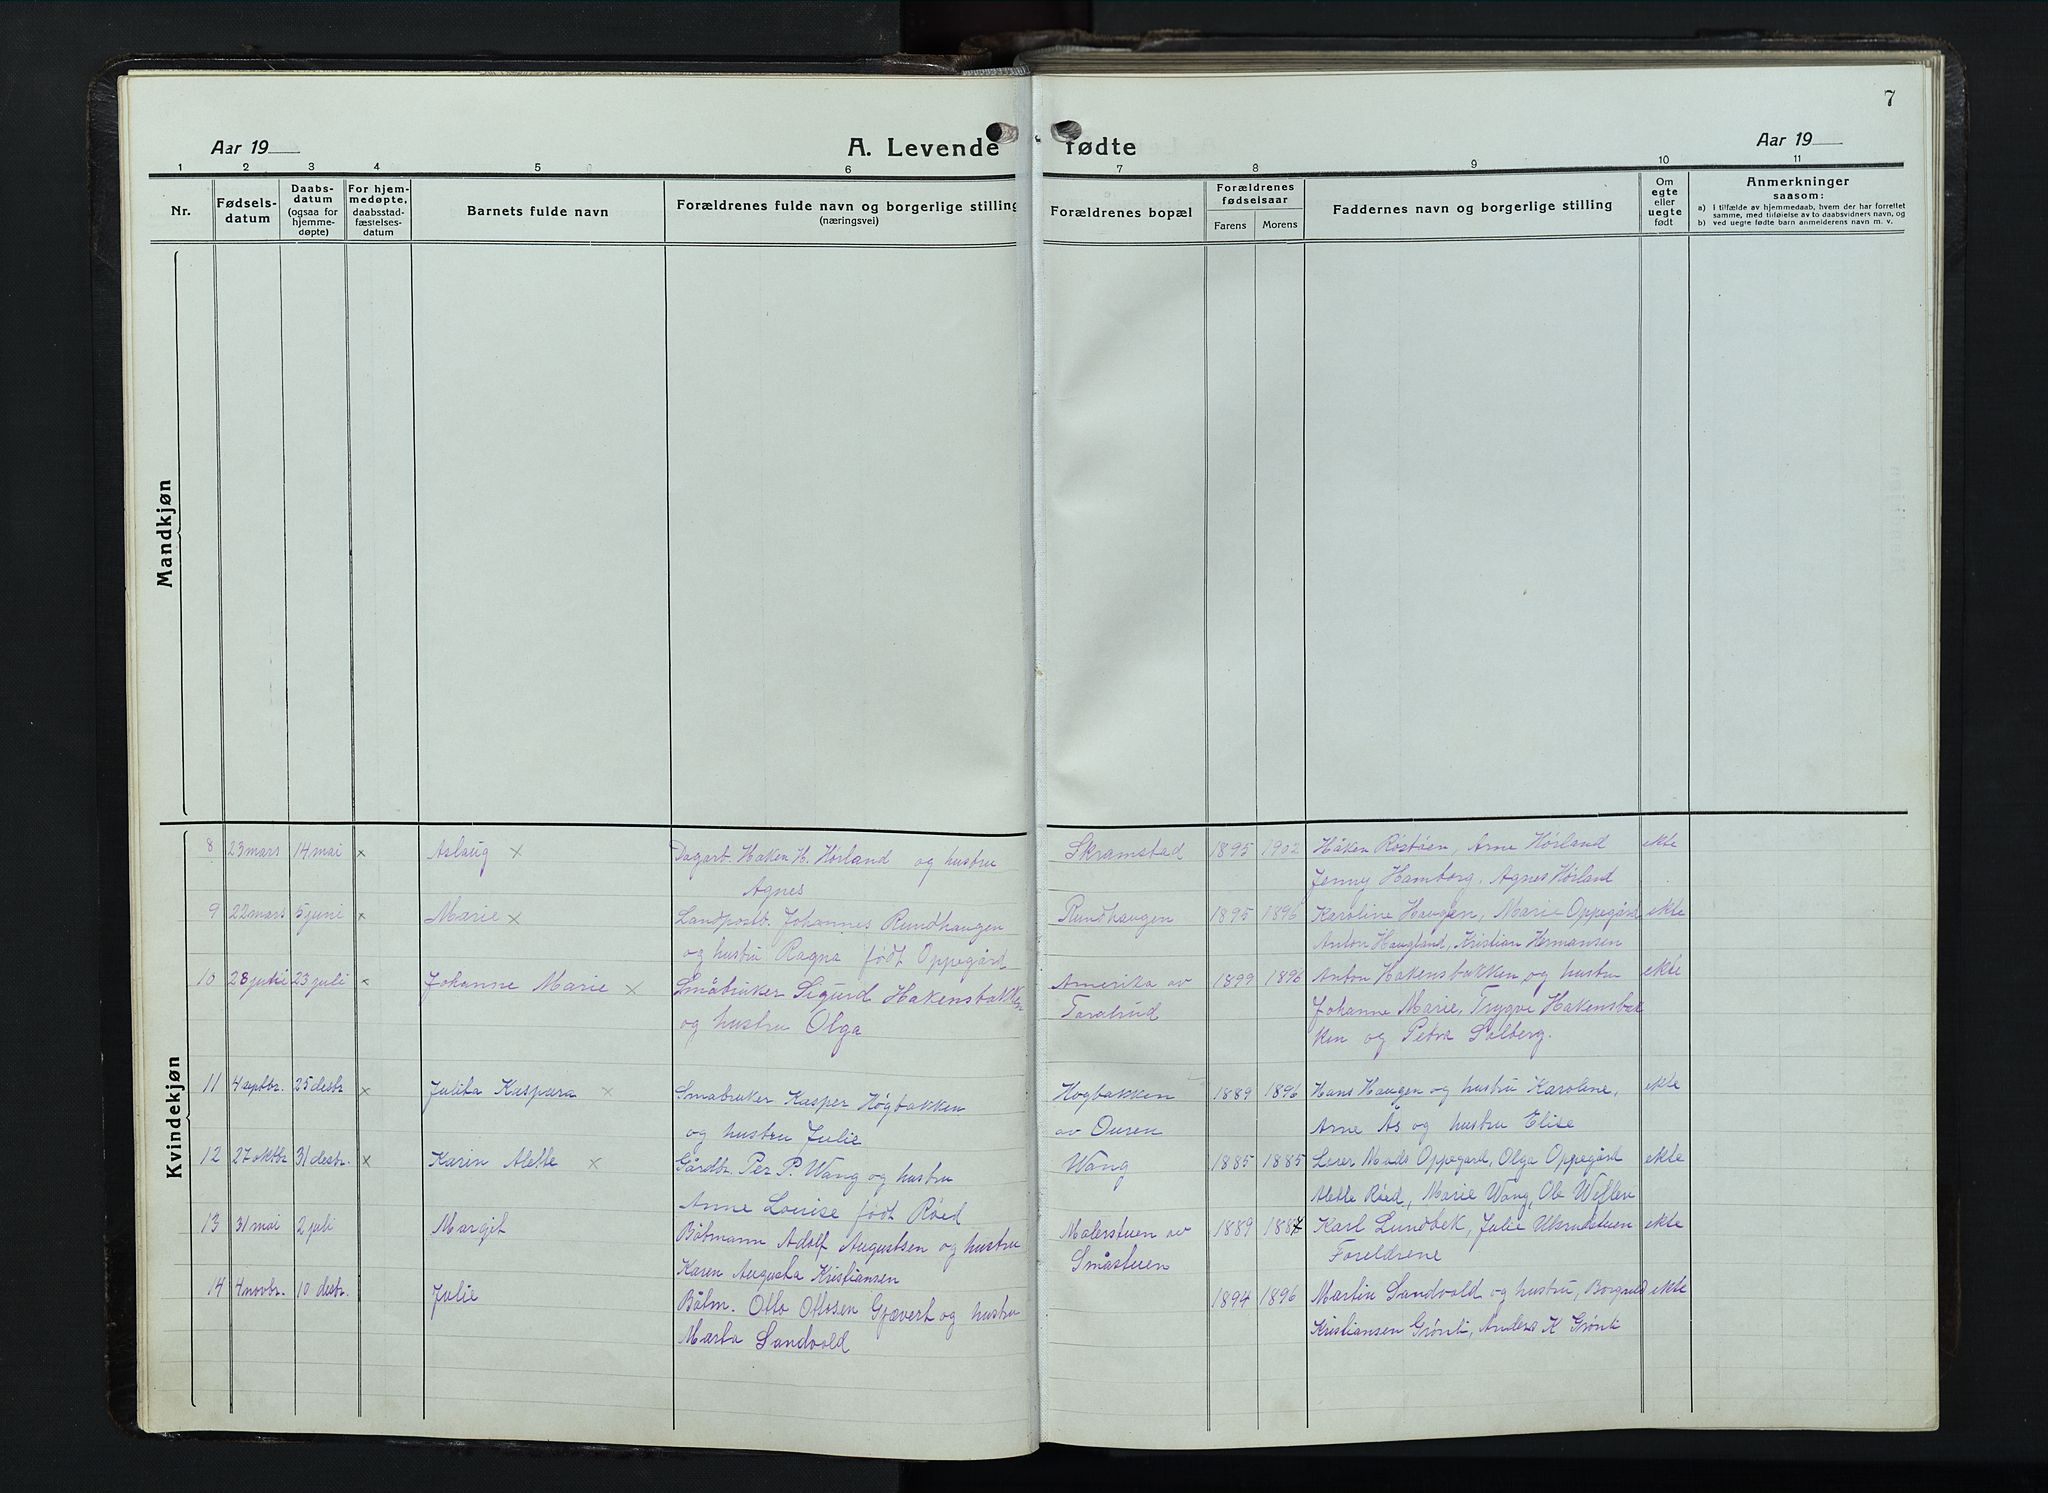 7
Aar 19
A. Levende fødte
Aar 19
1 2 3 4 5 6 7 8 9 10 11
Nr.
Fødsels-
datum
Daabs-
datum
(ogsaa for
hjemme-
døpte)
For hjem-
medøpte,
daabsstad-
fæstelses-
datum
Barnets fulde navn
Forældrenes fulde navn og borgerlige stilling
(næringsvei)
Forældrenes bopæl
Forældrenes
fødselsaar
Farens
Morens
Faddernes navn og borgerlige stilling
Om
egte
eller
uegte
født
Anmerkninger
saasom:
a) I tilfælde av hjemmedaab, hvem der har forrettet
samme, med tilføielse av to daabsvidners navn, og
b) ved uegte fødte barn anmelderens navn m. v.
Mandkjøn
Kvindekjøn
8 23 mars 14 mai x Aslaug x Dagarb. Haken H. Hörland og hustru Skramstad 1895 1902 Håken Röståen, Arne Hörland ekte
Agnes Jenny Hamborg, Agnes Hörland
9 22 mars 5 juni x Marie x Landpostb. Johannes Rundhaugen Rundhaugen 1895 1896 Karoline Haugen, Marie Oppegård ekte
og hustru Ragna født Oppegård Anton Haugland, Kristian Hermansen
10 28 juni 23 juli x Johanne Marie x Småbruker Sigurd Hakensbakken Amerika av 1899 1896 Anton Hakensbakken og hustru ekte
og hustru Olga Taralrud Johanne Marie, Trygve Hakensbak
ken og Petra Solberg.
11 4 septbr. 25 desbr x Julita Kaspara x Småbruker Kasper Høgbakken Hogbakken 1889 1896 Hans Haugen og hustru Karoline, ekte
og hustru Julie av Ouren Arne Ås og hustru Elise
12 27 oktbr 31 desbr. x Karin Alette x Gårdbr. Per P. Wang og hustru Wang 1885 1885 Lærer Mads Oppegård, Olga Oppegård ekte
Anne Louise født Röed Alette Röed, Marie Wang, Ole Weflen
13 31 mai 2 juli Margit Båtmann Adolf Augustsen og hustru Malerstuen av 1889 1887 Karl Lundbek, Julie ekte
Karen Augusta Kristiansen Småstuen Foreldrene
14 4 novbr. 10 desbr. Julie Båtm. Otto Ottosen Gjævert og hustru 1894 1896 Martin Sandvold og hustru, Borghild ekte
Marta Sandvold Kristiansen Grönli, Anders K Grönli